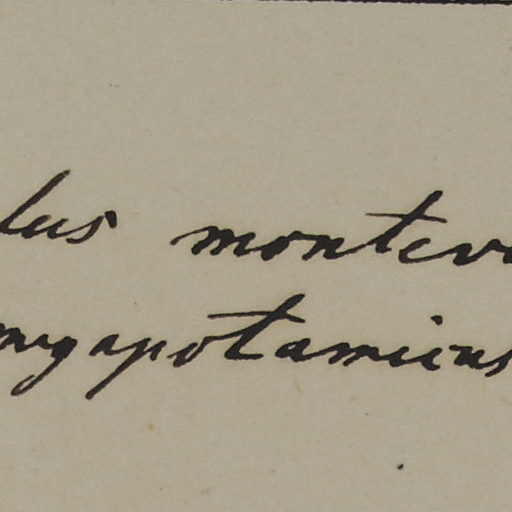 lus montev
megapotamicus